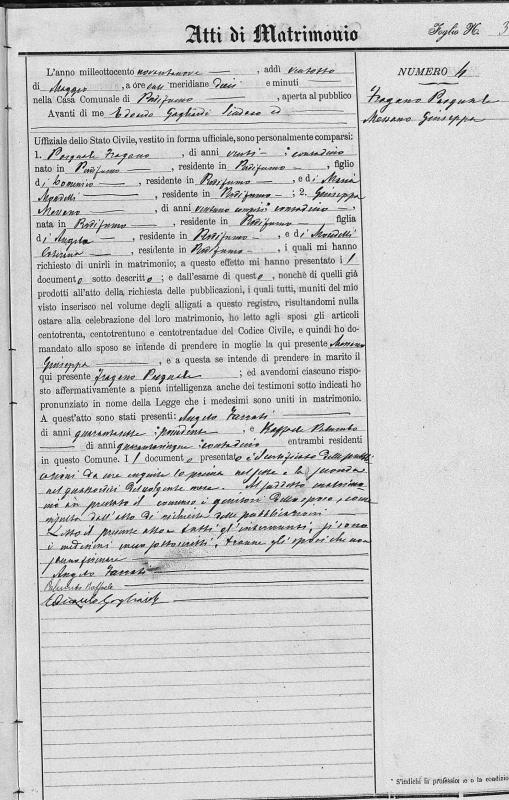 Atti di Matrimonio
Foglio N. 3
NUMERO 4
Fragano Pasquale
Messano Giuseppa
L'anno milleottocento novantanove, addì ventotto
di Maggio, a ore anti meridiane dieci e minuti
nella Casa Comunale di Rodifumo, aperta al pubblico
Avanti di me Edoardo Gagliardi Sindaco ed
Uffiziale dello Stato Civile, vestito in forma ufficiale, sono personalmente comparsi:
1. Pasquale Fragano, di anni venti, contadino
nato in Rodifumo, residente in Rodifumo, figlio
di, residente in Rodifumo, e di Maria
Mondelli, residente in Rodifumo; 2. Giuseppa
Messano, di anni contadina
nata in Rodifumo, residente in Rodifumo figlia
di Angelo, residente in Rodifumo, e di Mondelli
residente in Rodifumo, i quali mi hanno
richiesto di unirli in matrimonio; a questo effetto mi hanno presentato i l
documento sotto descritto; e dall'esame di questo, nonchè di quelli già
prodotti all'atto della richiesta delle pubblicazioni, i quali tutti, muniti del mio
visto inserisco nel volume degli allegati a questo registro, risultandomi nulla
ostare alla celebrazione del loro matrimonio, ho letto agli sposi gli articoli
centotrenta, centotrentuno e centotrentadue del Codice Civile, e quindi ho do-
mandato allo sposo se intende di prendere in moglie la qui presente Messano
Giuseppa, e a questa se intende di prendere in marito il
qui presente Fragano Pasquale; ed avendomi ciascuno rispo-
sto affermativamente a piena intelligenza anche dei testimoni sotto indicati ho
pronunziato in nome della Legge che i medesimi sono uniti in matrimonio.
A quest'atto sono stati presenti: Angelo Farrati
di anni quarantasette possidente, e Raffaele
di anni quarantacinque contadino entrambi residenti
in questo Comune. I l documento presentato è il certificato delle pubbli
cazioni da me eseguite la prima nel sette e la seconda
nel quattordici del volgente mese. Al suddetto matrimo
nio àn prestato il consenso i genitori dello sposo, come
risulta dall'atto di richiesta delle pubblicazioni
Letto il presente atto a tutti gl'intervenuti, si sono
i medesimi meco sottoscritti, tranne gli sposi che non
sanno firmare
Angelo Farrati
Raffaele
Edoardo Gagliardi
* S'indichi la professione o la condizione